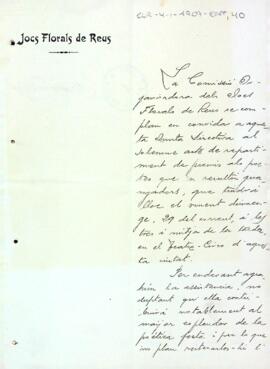 Jocs Florals de Reus
La Comissió Or-
ganisadora dels Jocs
Florals de Reus se com-
plau en convidar a aques-
ta Junta Directiva al
solemne acte de reparti-
ment de premis als po-
etes que 'n resultin gua-
nyadors, que tindrá
lloc el vinent diumen-
ge, 29 del current, á les
tres i mitja de la tarda
en el Teatre-Circo d' aques-
ta ciutat.
Per endavant agra-
him la assistencia, no
duptant qu' ella contri-
buirá notablement al
major esplendor de la
poètica festa i per lo que